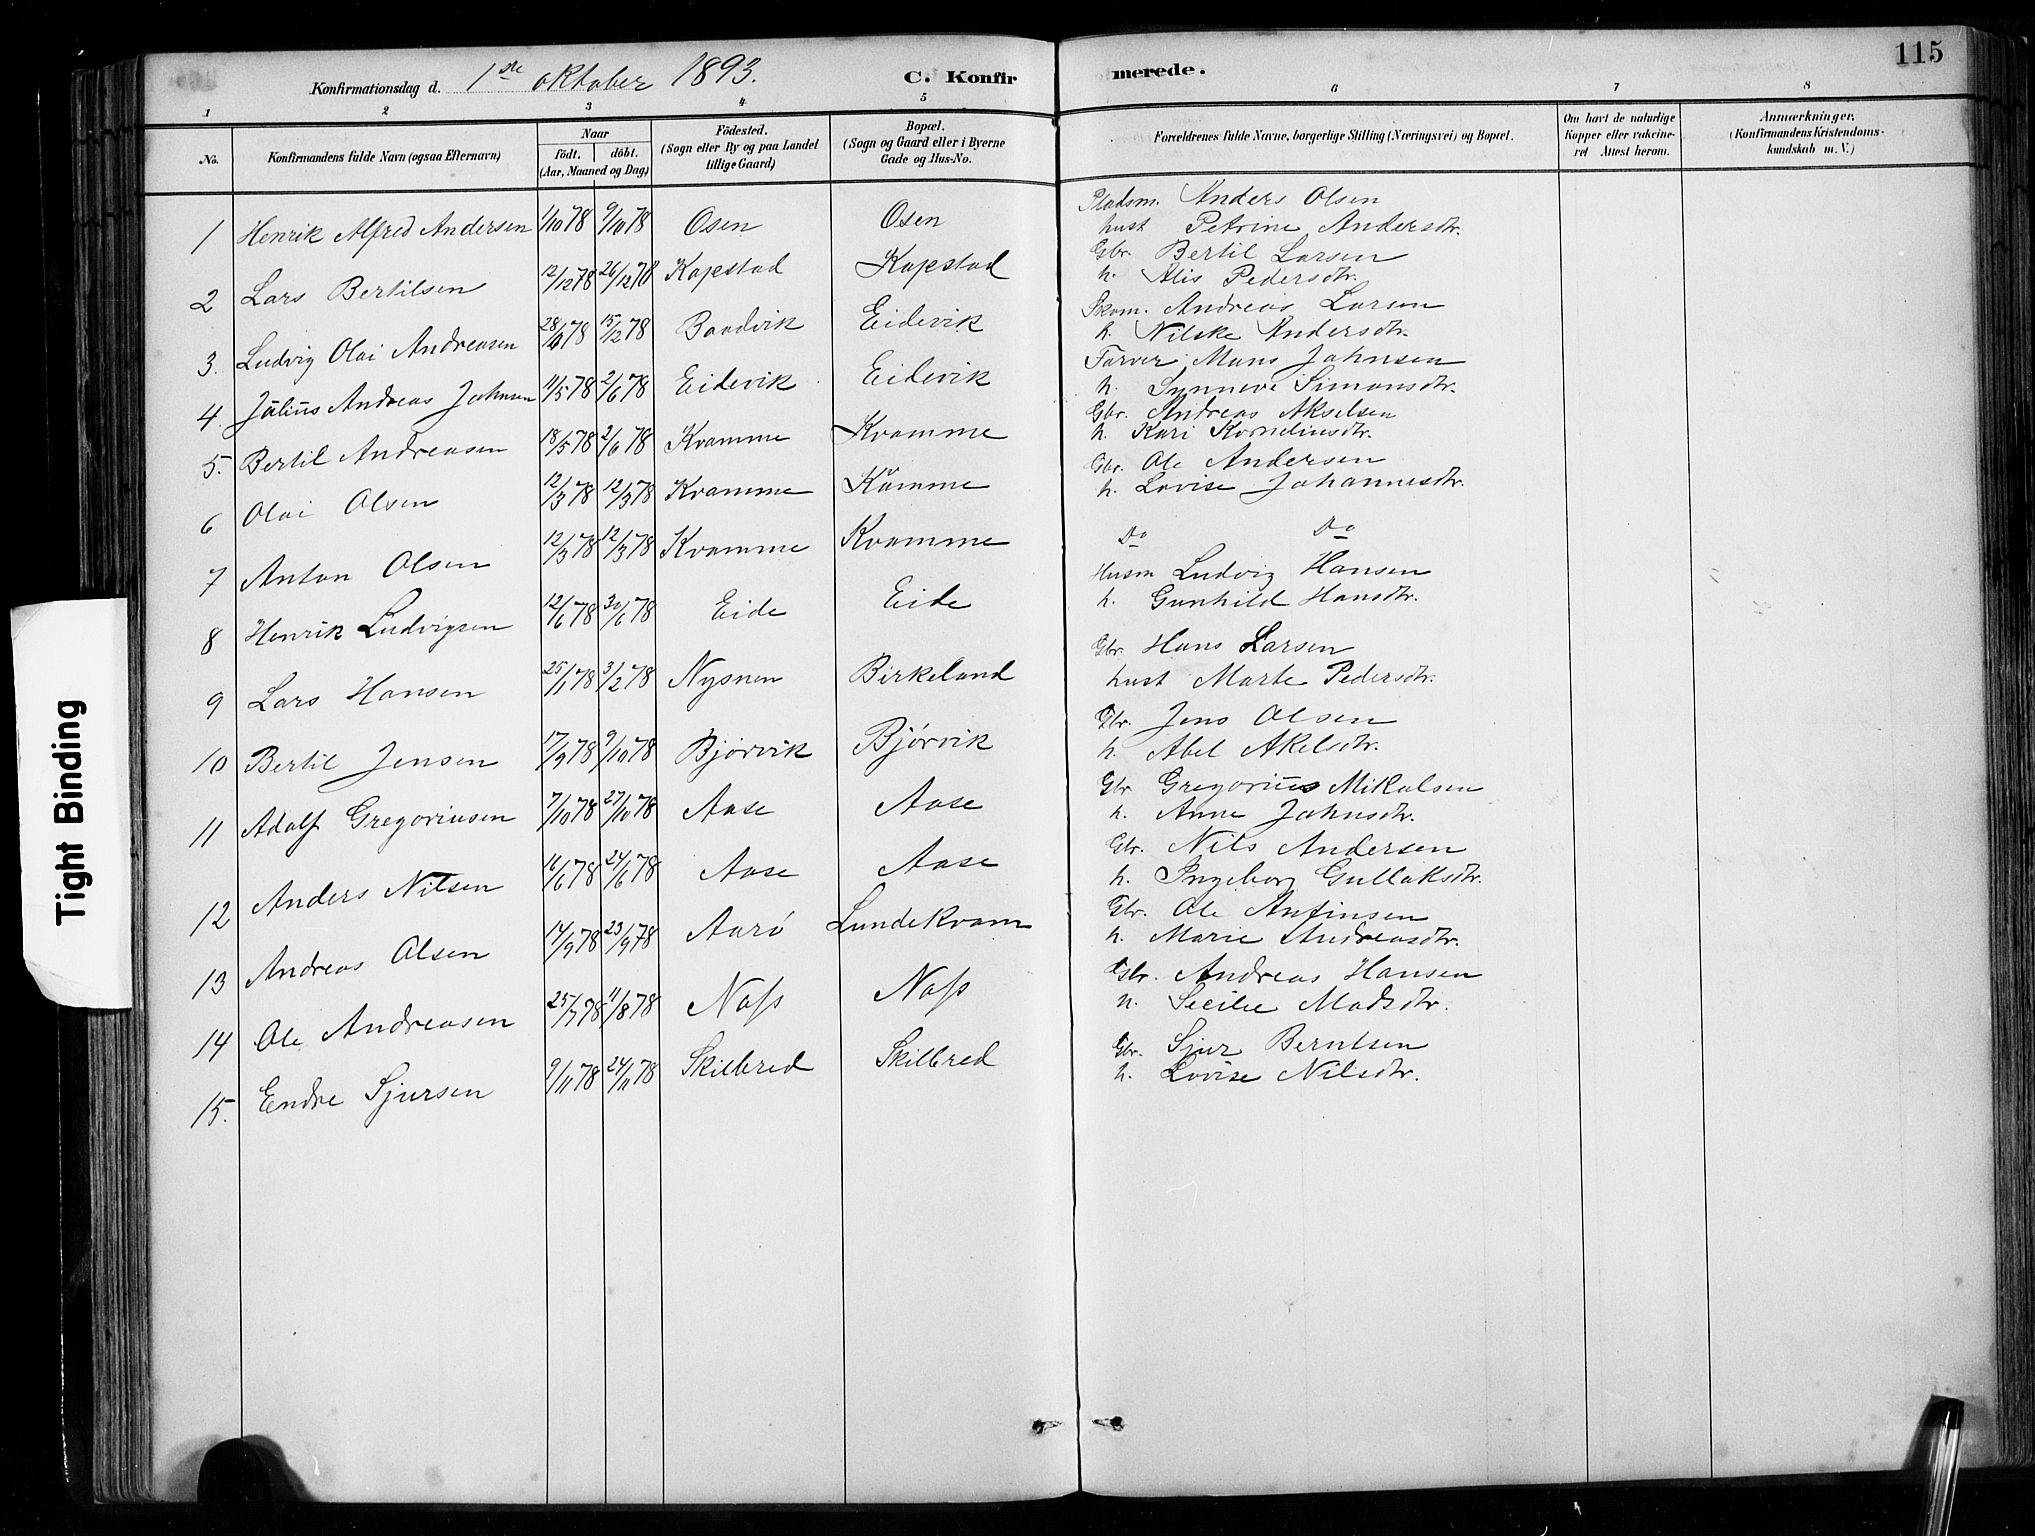 115
Konfirmationsdag d. 1ste oktober 1893. C. Konfirmerede.
1 2 3 4 5 6 7 8
No. Konfirmandens fulde Navn (ogsaa Efternavn) Naar födt. döbt. (Aar, Maaned og Dag) Födested. (Sogn eller By og paa Landet tillige Gaard) Bopæl. (Sogn og Gaard eller i Byerne Gade og Hus-No. Forældrenes fulde Navne, borgerlige Stilling (Næringsvei) og Bopæl. Om havt de naturlige Kopper eller vakcineret Attest herom. Anmærkninger. (Konfirmandens Kristendomskundskab m. V.)
1 Henrik Alfred Andersen 1/10 78 9/10 78 Osen Osen Pladsm. Anders Olsen
hust Petrine Andersdtr.
2 Lars Bertilsen 12/12 78 26/12 78 Kapstad Kapstad Gbr. Bertil Larsen
h. Alis Pedersdtr.
3. Ludvig Olai Andreasen 78 15/12 78 Baadvik Eidevik Skom. Andreas Larsen
h. Nilske Andersdtr.
4. Julius Andreas Johnsen 11/5 78 2/6 78 Eidevik Eidevik Farver Mons Johnsen
h. Synneve Simonsdtr.
5. Bertil Andreasen 18/5 78 2/6 78 Kvamme Kvamme Gbr. Andreas Akselsen
h. Kari Kornelius dtr.
6 Olai Olsen 12/3 78 12/3 78 Kvamme Kamme Gbr. Ole Andersen
h. Lovise Johannesdtr.
7 Anton Olsen 12/3 78 12/3 78 Kvamme Kvamme Do Do
8 Henrik Ludvigsen 12/6 78 30/6 78 Eide Eide Husm Ludvig Hansen
h. Gunhild Hansdtr.
9 Lars Hansen 25/1 78 3/2 78 Nysnen Birkeland Gbr. Hans Larsen
hust Marte Pedersdtr.
10 Bertil Jensen 17/9 78 9/10 78 Bjørvik Bjørvik Gbr. Jens Olsen
h. Abel Akelsdtr.
11 Adolf Gregoriusen 7/10 78 27/10 78 Aase Aase Gbr Gregorius Mikalsen
h. Anne Johnsdtr.
12 Anders Nilsen 16/6 78 24/6 78 Aase Aase Gbr. Nils Andersen
h. Ingeborg Gullaksdtr.
13 Andreas Olsen 14/9 78 23/9 78 Aarö Lundekvam Gbr. Ole Anfinsen
h. Marie Andreasdtr.
14 Ole Andreasen 25/7 78 11/8 78 Nass Nass Gbr. Andreas Hansen
h. Secilie Madsdtr.
15. Endre Sjursen 9/11 78 24/11 78 Skilbred Skilbred Gbr. Sjur Berntsen
h. Lovise Nilsdtr.
Tight Binding